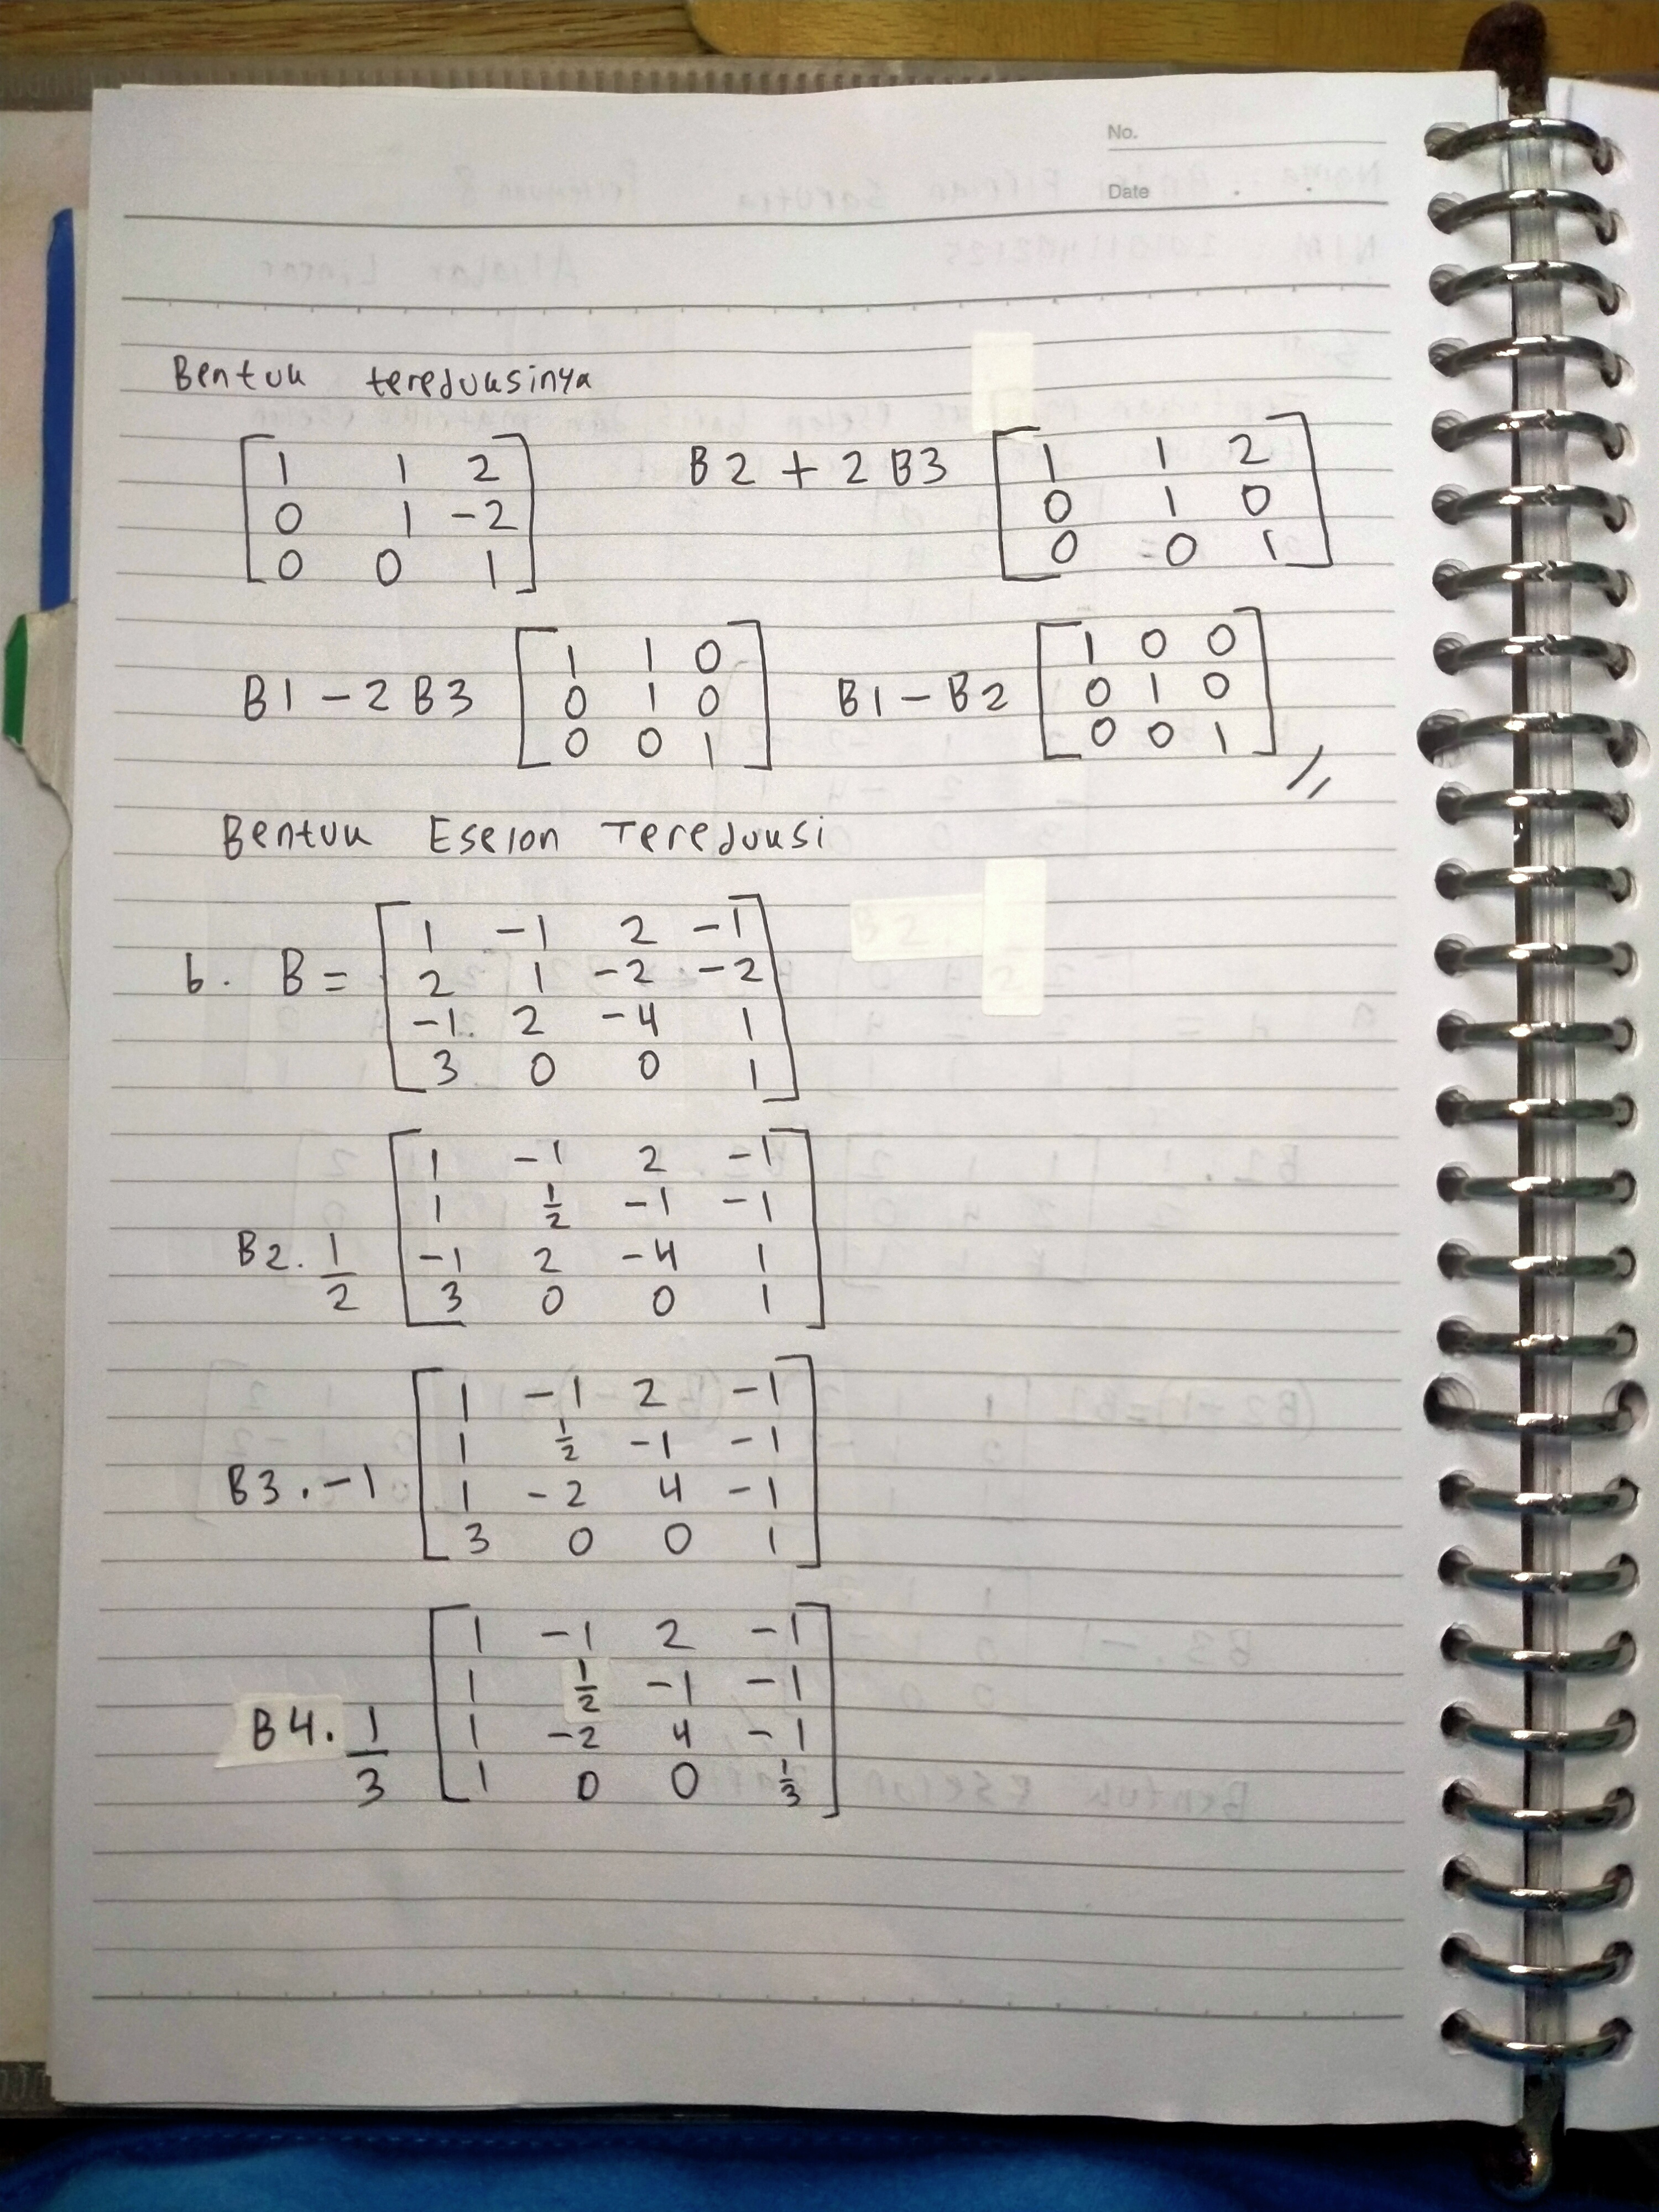 No.
Date
Bentuk tereduksinya
1 1 2
0 1 -2
0 0 1
B2 + 2 B3
1 1 2
0 1 0
0 0 1
B1 - 2 B3
1 1 0
0 1 0
0 0 1
B1 - B2
1 0 0
0 1 0
0 0 1
//
Bentuk Eselon Tereduksi
b. B =
1 -1 2 -1
2 1 -2 -2
-1 2 -4 1
3 0 0 1
B2. 1/2
1 -1 2 -1
1 1/2 -1 -1
-1 2 -4 1
3 0 0 1
B3. -1
1 -1 2 -1
1 1/2 -1 -1
1 -2 4 -1
3 0 0 1
B4. 1/3
1 -1 2 -1
1 1/2 -1 -1
1 -2 4 -1
1 0 0 1/3